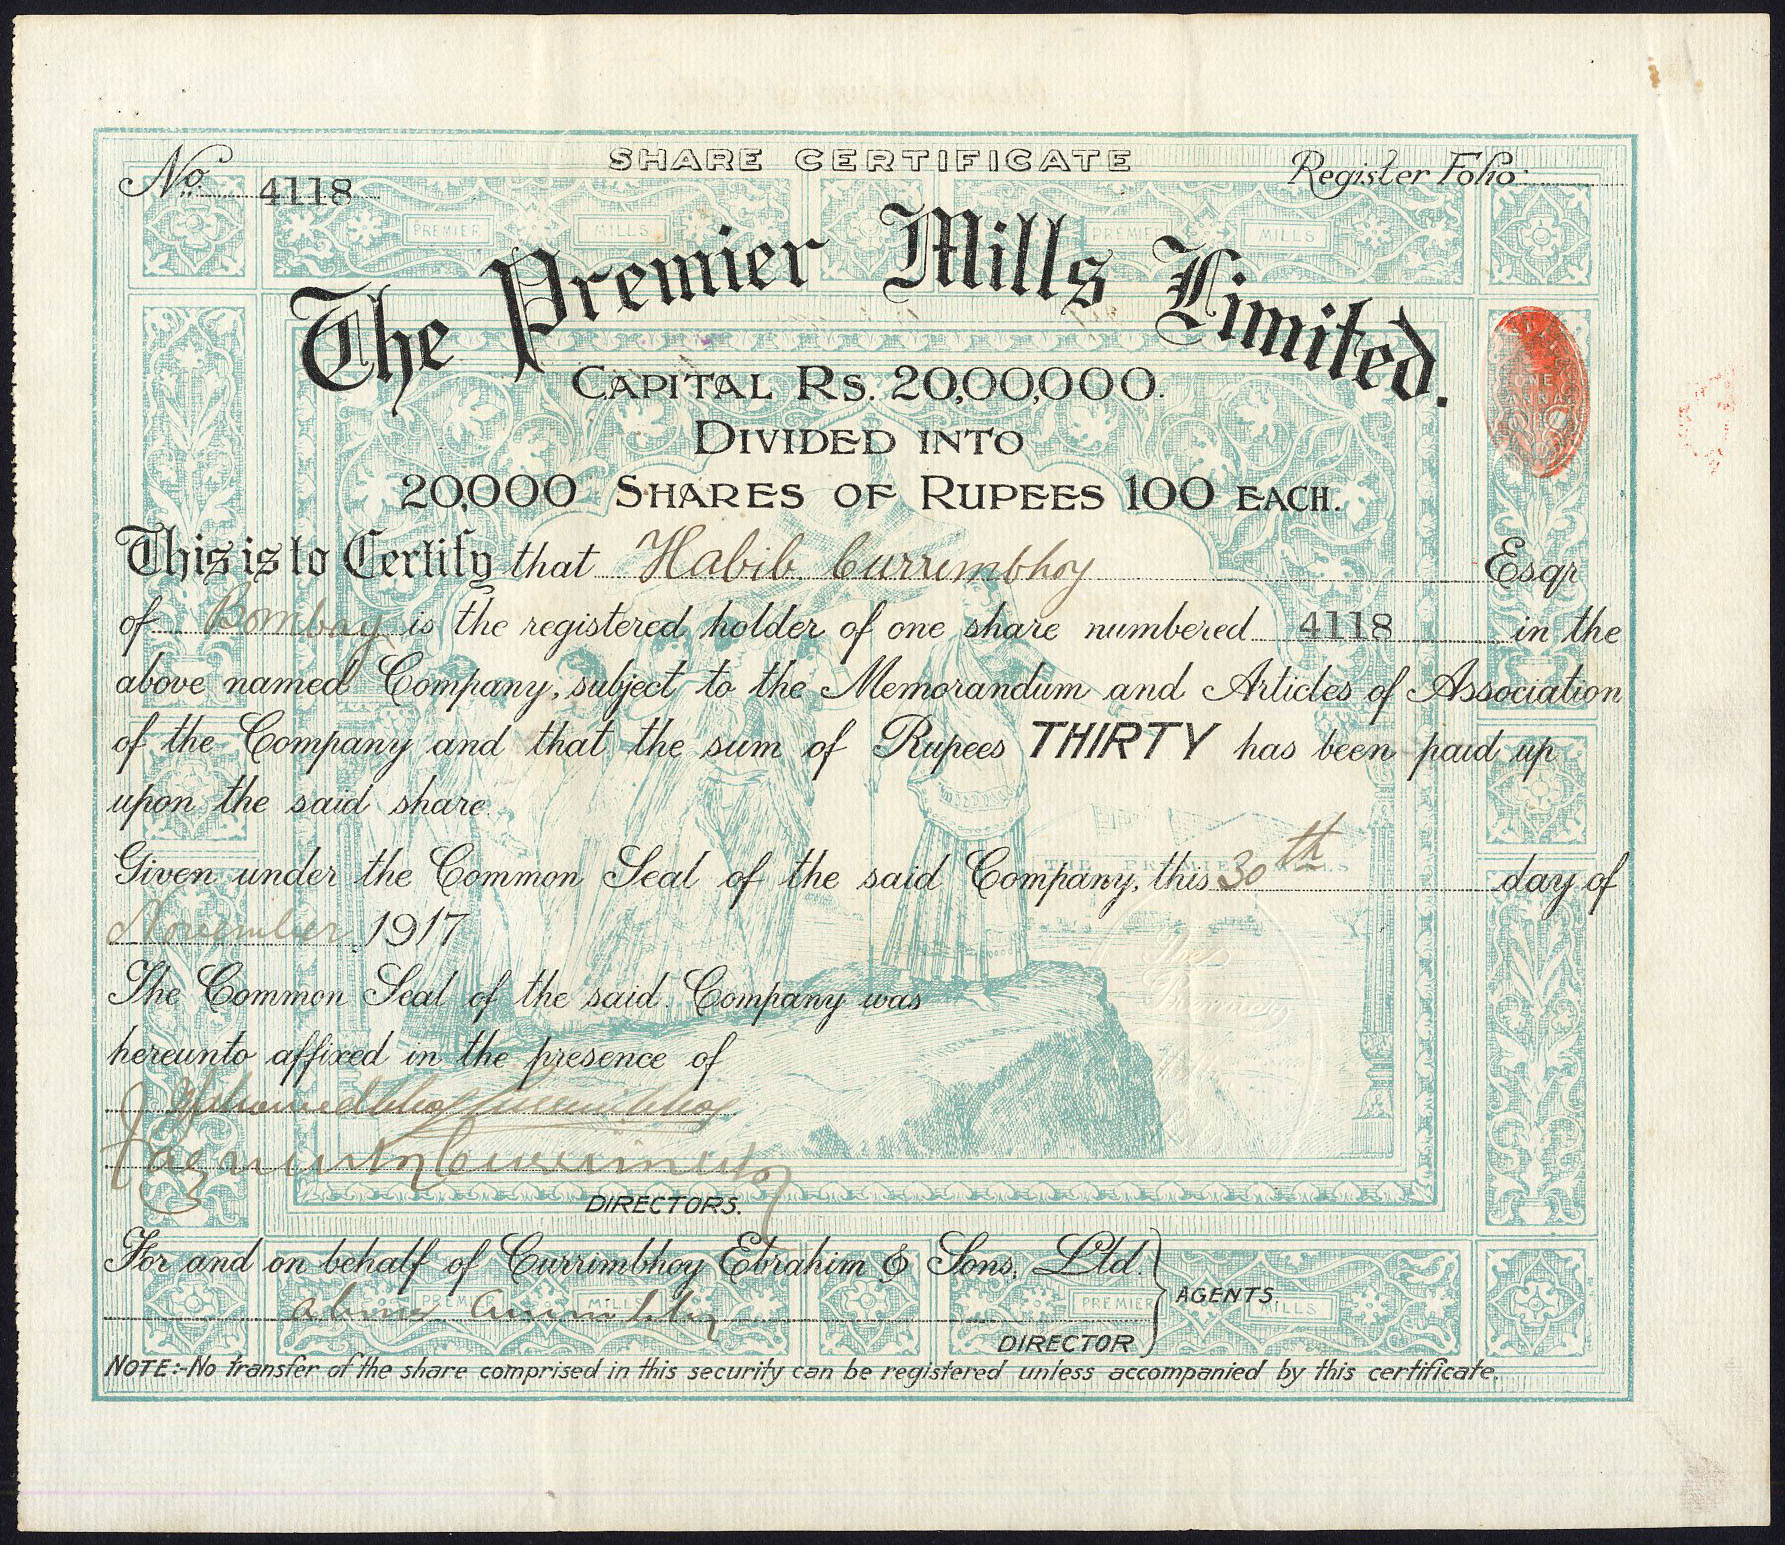 SHARE CERTIFICATE
No. 4118
Register Folio:
PREMIER MILLS PREMIER MILLS
The Premier Mills Limited.
CAPITAL RS. 20,00,000.
DIVIDED INTO
20,000 SHARES OF RUPEES 100 EACH.
ONE ANNA
This is to Certify that Habib Currimbhoy Esqr
of Bombay is the registered holder of one share numbered 4118 in the
above named Company, subject to the Memorandum and Articles of Association
of the Company and that the sum of Rupees THIRTY has been paid up
upon the said share.
THE PREMIER MILLS
Given under the Common Seal of the said Company, this 30th day of
November 1917
The Premier
The Common Seal of the said Company was
hereunto affixed in the presence of
Mahomedbhoy Currimbhoy
Currimbhoy
DIRECTORS.
For and on behalf of Currimbhoy Ebrahim & Sons, Ltd.
AGENTS
Currimbhoy
PREMIER MILLS PREMIER MILLS
DIRECTOR
NOTE:-No transfer of the share comprised in this security can be registered unless accompanied by this certificate.